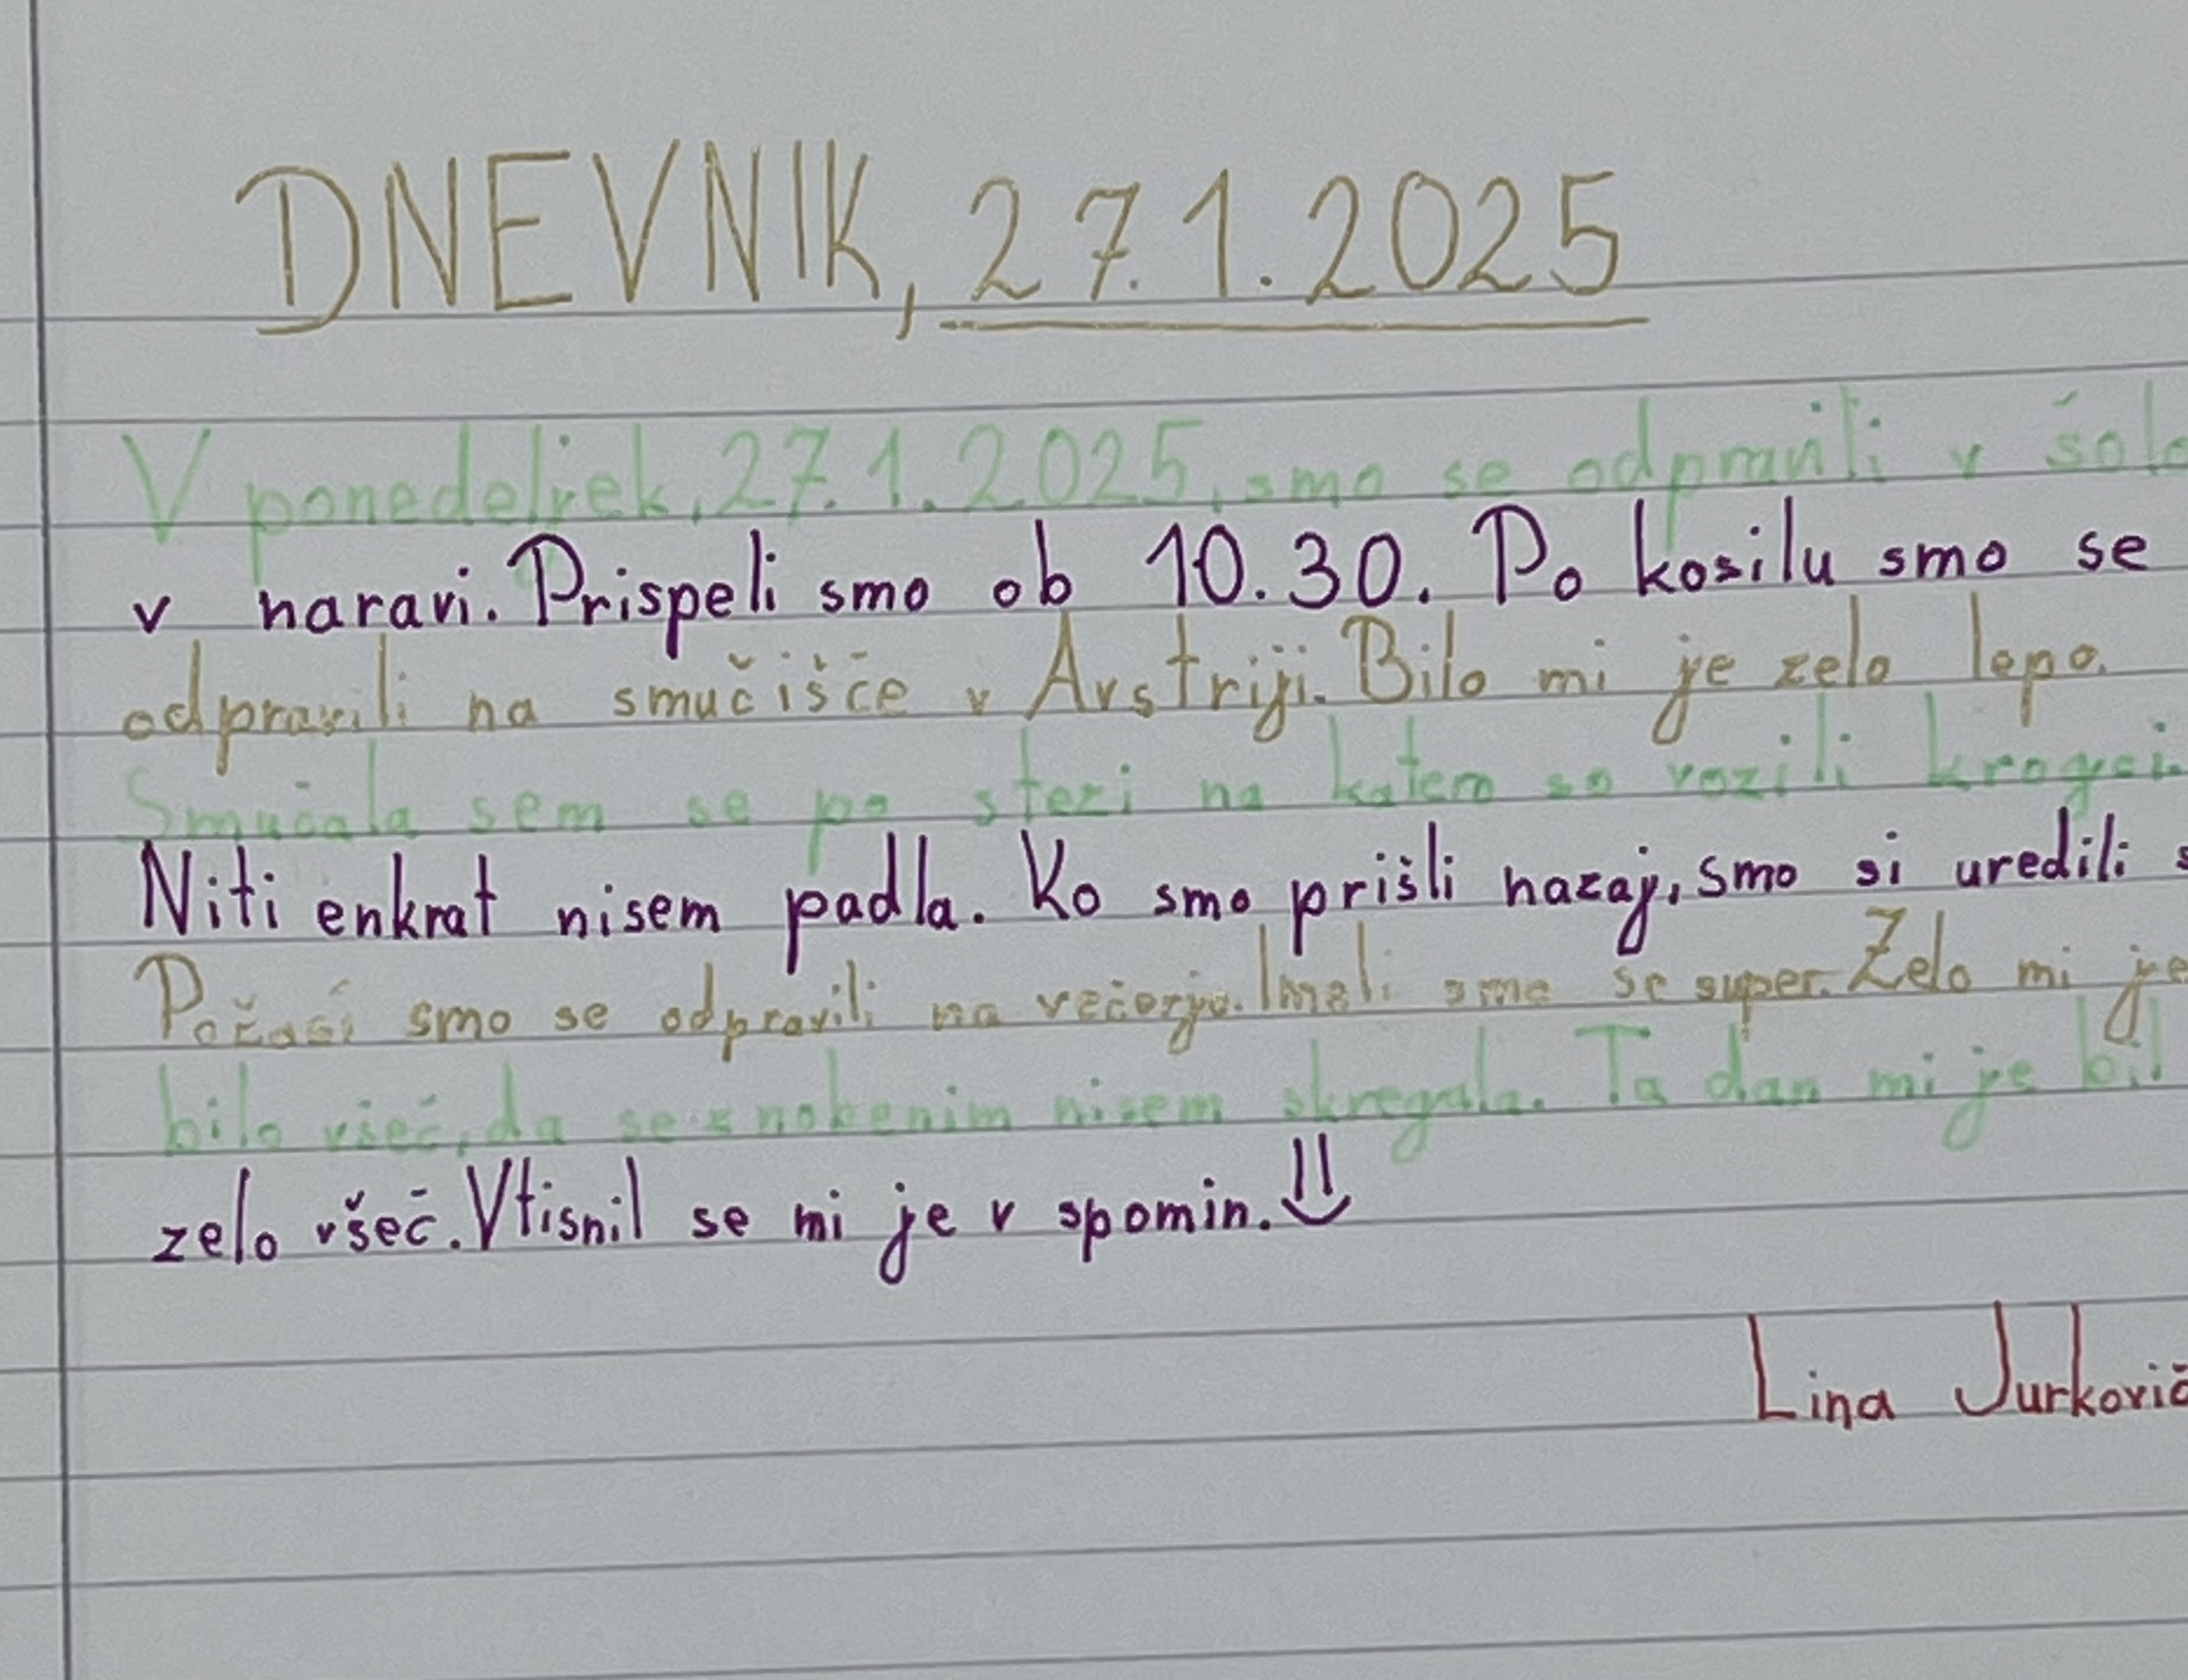 DNEVNIK, 27.1.2025
V ponedeljek, 27.1.2025, smo se odpravili v šolo
v naravi. Prispeli smo ob 10.30. Po kosilu smo se
odpravili na smučišče v Avstriji. Bilo mi je zelo lepo.
Smučala sem se po stezi na katero so vozili krogci.
Niti enkrat nisem padla. Ko smo prišli nazaj, smo si uredili
Počasi smo se odpravili na večerjo. Imeli smo se super. Zelo mi je
bilo všeč, da se z nobenim nisem skregala. Ta dan mi je bil
zelo všeč. Vtisnil se mi je v spomin.
Lina Jurkovič